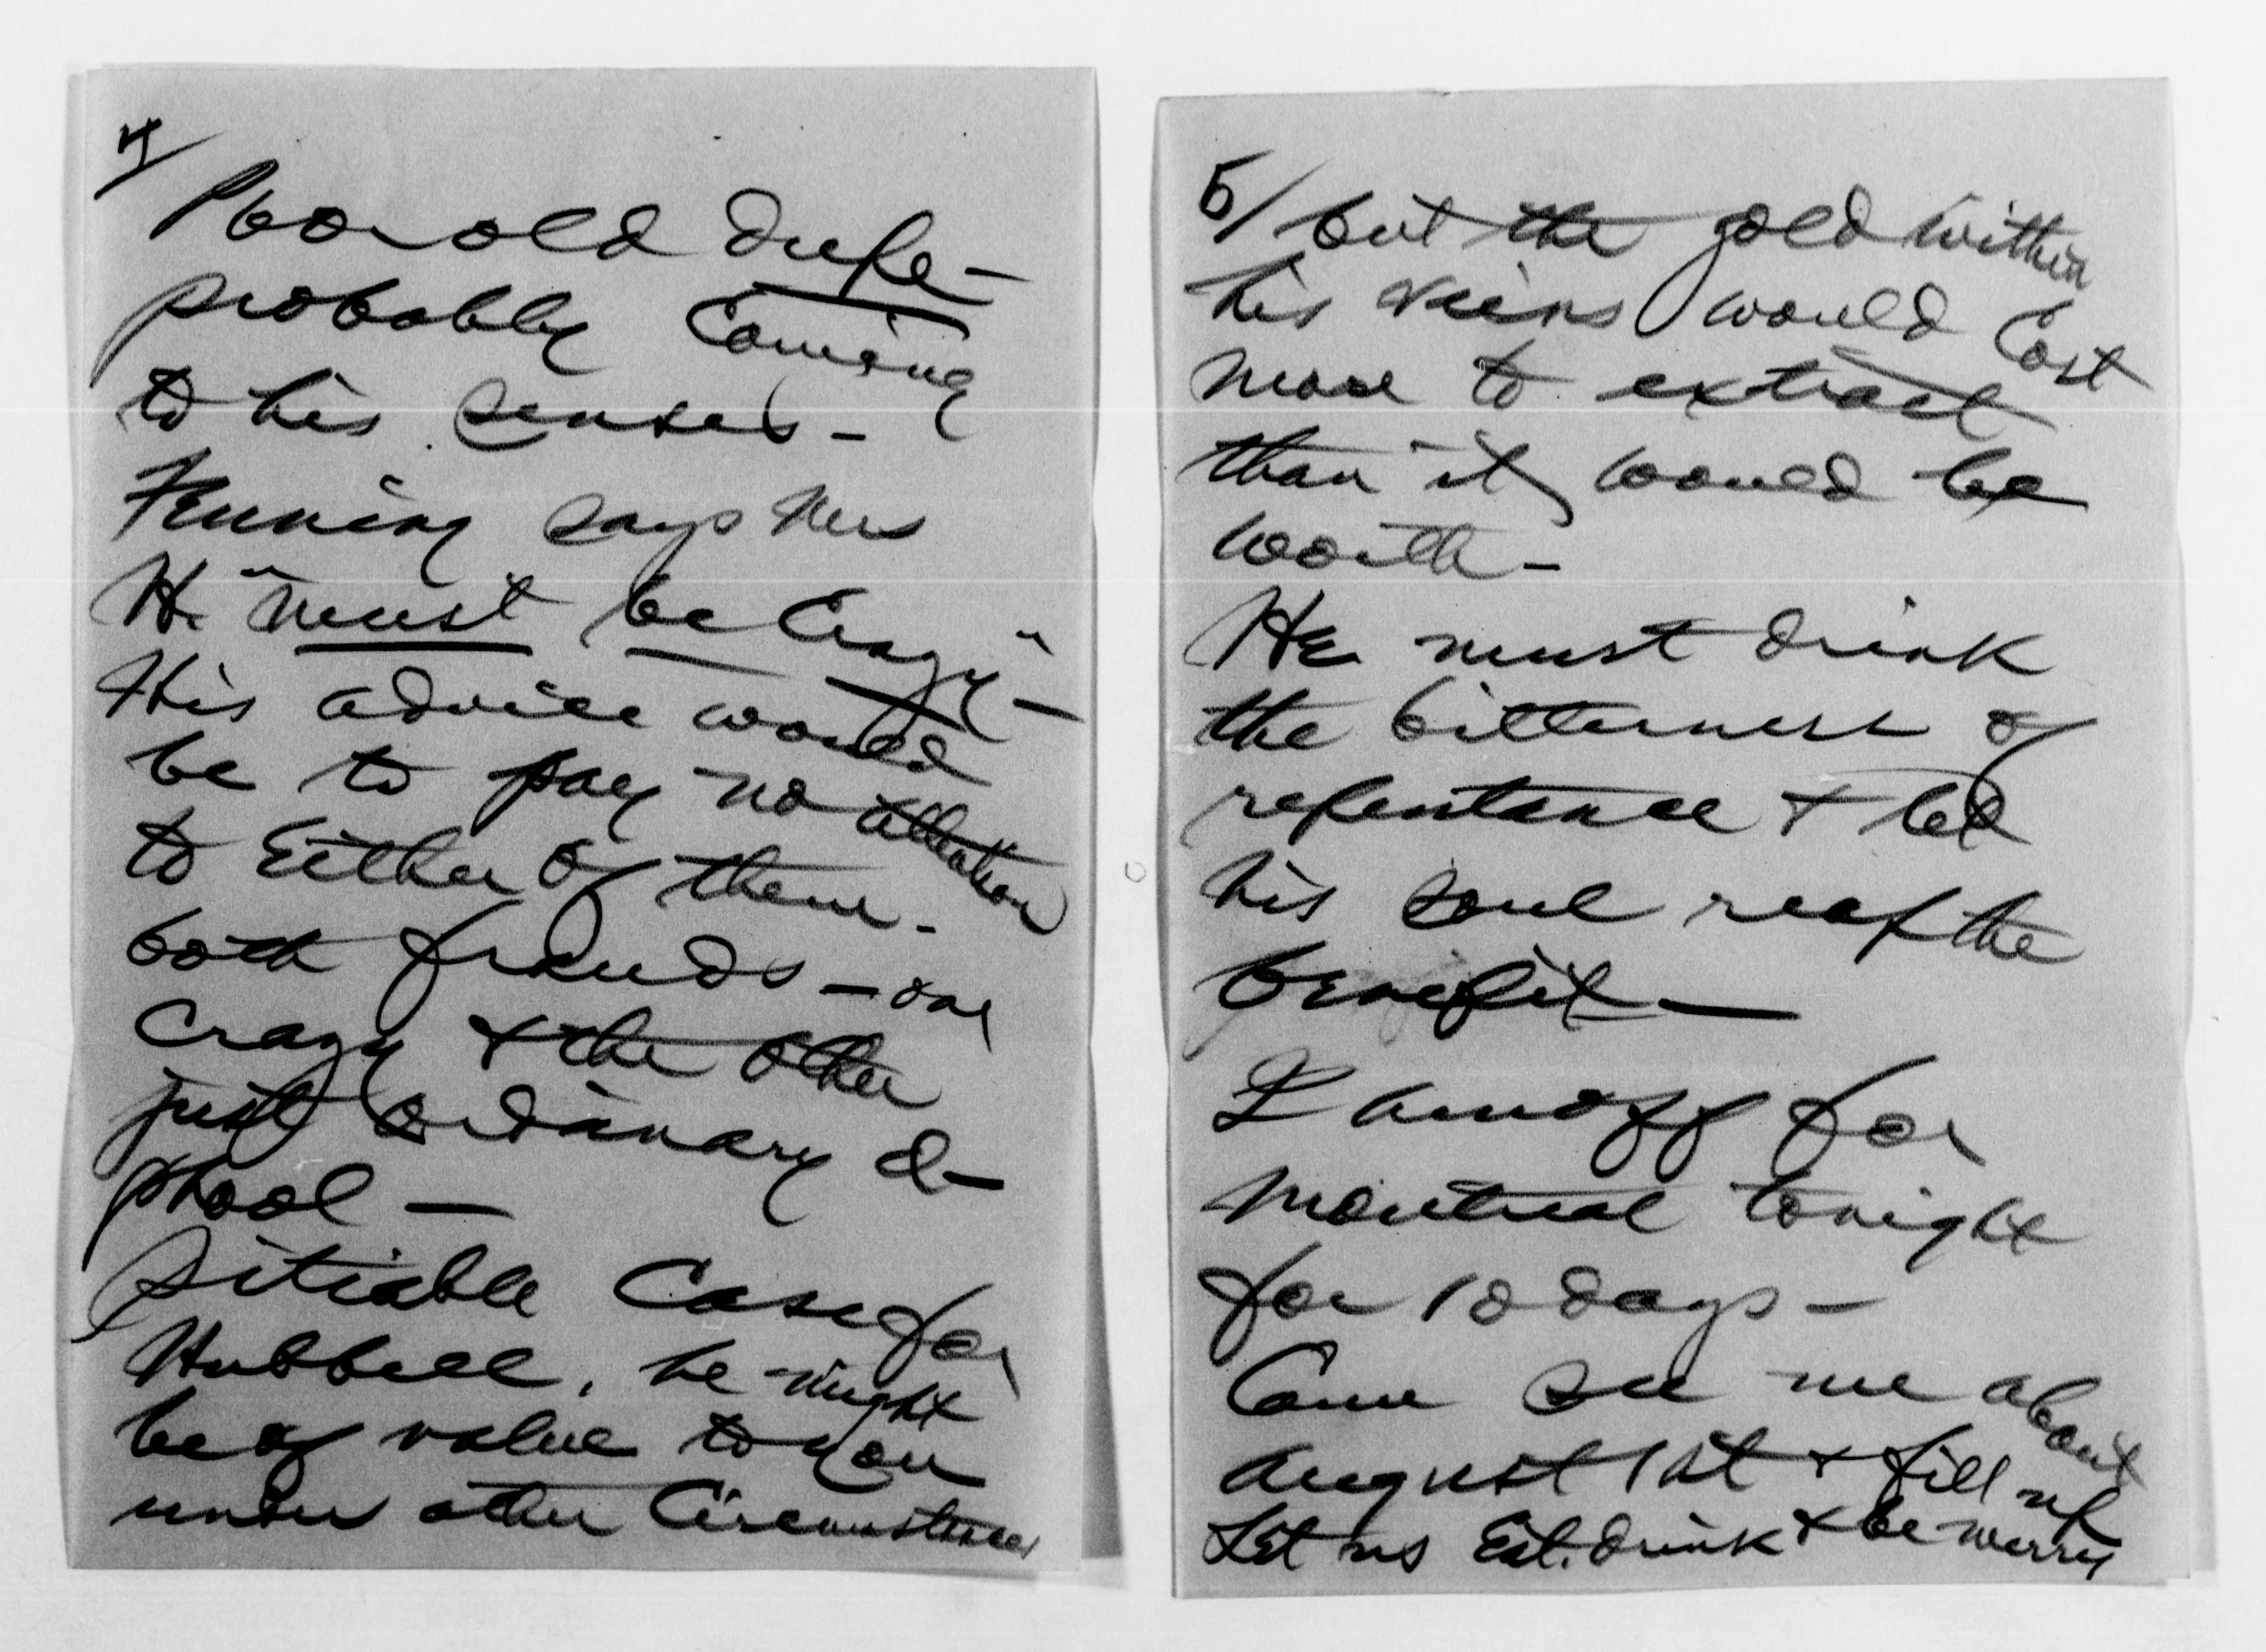 4/
Poor old dupe —
probably Coming
to his senses —
Fenning says Mrs
H. "must be Crazy" —
His advice would
be to pay no attention
to Either of them —
both frauds — one
Crazy & the other
just ordinary d—
phool —
Pitiable Case for
Hubbell, he might
be of value to you
under other Circumstances
5/ but the gold within
his veins would Cost
more to extract
than it would be
worth —
He must drink
the bitterness of
repentance & let
his soul reap the
benefit —
I am off for
Montreal tonight
for 10 days —
Come see me about
August 1st & fill up
Let us Eat. drink & be merry